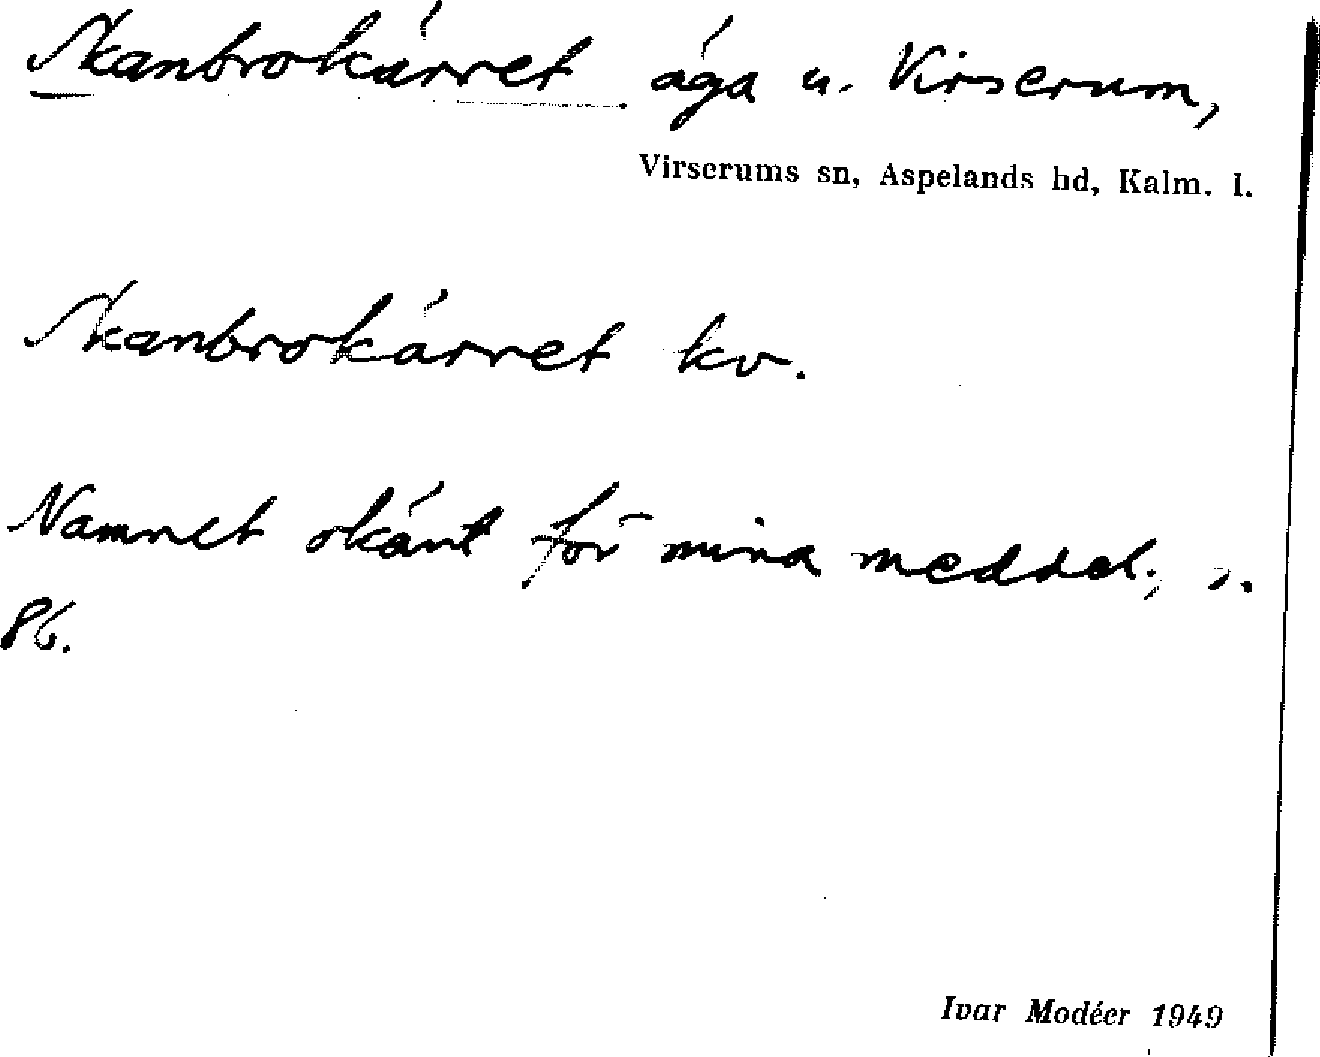 Skanbrokärret äga u. Virserum,
Virserums sn, Aspelands hd, Kalm. l.
Skanbrokärret kv.
Namnet okänt för mina meddel., s.
86.
Ivar Modéer 1949